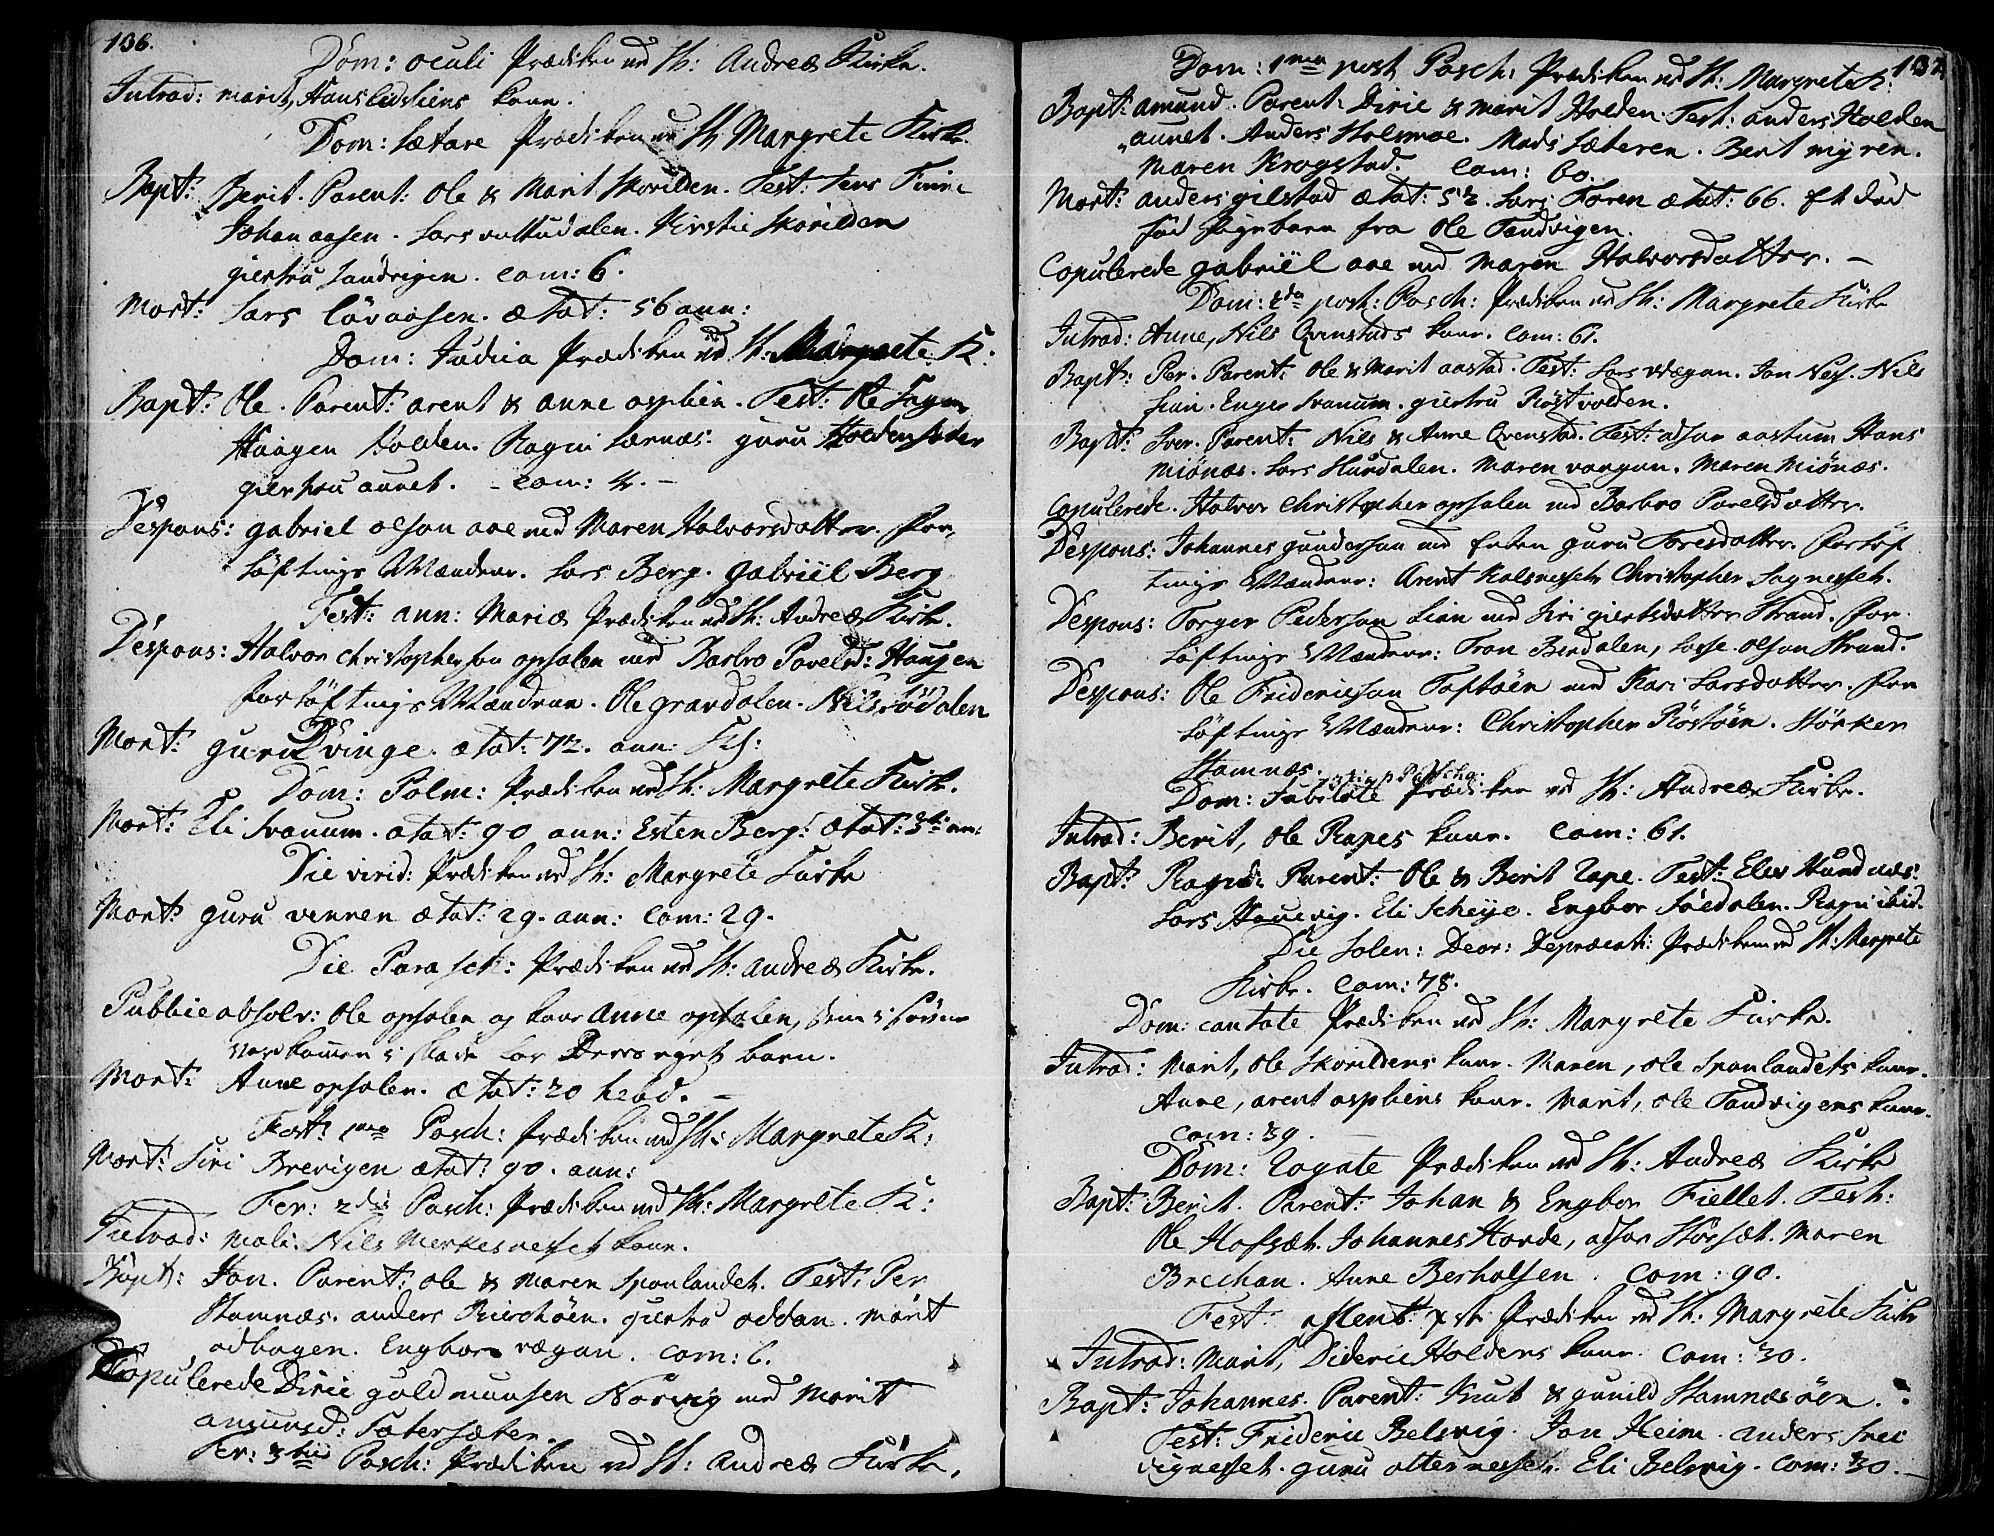 136.
Dom: oculi Prædiken ved St: Andreæ Kirke.
Introd: marit, Hans Lidsliens kone.
Dom: Lætare Prædiken ved St Margrete Kirke.
Bapt: Berit. Parent: Ole & Marit Skorilden. Test: Jens Finne
Johan aasen. Lars vuttudalen. Kirstie Skorilden
giertru Sandvigen. com: 6.
Mort: Lars Lövaasen. ætat: 56 ann:
Dom: Judica Prædiken ved St: Margrete K:
Bapt: Ole. Parent: arent & anne asplien. Test: Ole Fagen
Haagen Holden. Ragni Lernæs. guru Holdensæter
giertru aunet. - com: 4. -
Despons: gabriel olsøn aae med Maren Halvorsdatter. For-
löftnings Mændene. Lars Berg. Gabriel Berg
Fest: ann: Mariæ Prædiken ved St: Andreæ Kirke.
Despons: Halvor christophersøn opsalen med Barbro Povelsd: Haugen
forlöftnings Mændene. Ole grandalen. Nils södalen
Mort: guru Dvinge. ætat: 72. ann:
Dom: Palm: Prædiken ved St: Margrete Kirke.
Mort: Eli Svanum. ætat: 90 ann: Esten Berg: ætat: 36 an:
Die virid: Prædiken ved St: Margrete Kirke
Mort: guru vennen ætat: 29. ann: com: 29.
Die Parasch: Prædiken ved St: andreæ Kirke.
Publice absolv: Ole opsalen og kone Anne opsalen, som i sövne
vare kommen i skade for Deres eget barn.
Mort: Anne opsalen. ætat: 20 hebd. -
Fest: 1ma Pasch: Prædiken ved St: Margrete K:
Mort: Siri Brevigen ætat: 90. ann:
Fer: 2da Pasch: Prædiken ved St: Margrete K:
Introd: Mali. Nils Merkesnesset kone.
Bapt: Jon. Parent: ole & maren Spanlandet. Test: Per
Stamnæs. anders Kirchöen. giertru oddan. marit
odbagen. Engbor vægan. com: 6.
Copulerede Diric guldmunsen Norvig med Marit
amunsd: Sætersæter.
Fer: 3tia Pasch: Prædiken ved St: andreæ Kirke.
137
Dom: 1ma post Pasch: Prædiken ved St: Margrete K:
Bapt: amund. Parent: Diric & marit Holden. Test: anders Holden
aunet. Anders Holsmoe. Mads Sæteren. Berit myren.
Maren Krogstad. com: 60.
Mort: anders gilstad ætat: 52. Lars Foren ætat: 66. Et död
föd Pigebarn fra Ole Tandvigen.
Copulerede gabriel aae med maren Halvorsdatter. -
Dom: 2da post: Pasch: Prædiken ved St: Margrete Kirke
Introd: Anne, Nils Qvenstads kone. com: 61.
Bapt: Per. Parent: Ole & Marit aastad. Test: Lars vægan. Jon Næs. Nils
Finn. Enger Svanum. giertru Röstvolden.
Bapt: Iver. Parent: Nils & Anne Qvenstad. Test: olsøn aastum Hans
miönæs. Lars Hundalen. Maren vangan. Maren Miönæs.
Copulerede. Halvor Christopher opsalen med Barbro Povelsdatter.
Despons: Johannes gundersøn med Enken guru Toresdatter. Forlöf
tnings Mændene: Arent Kalsnesset Christopher Fagnesset.
Despons: Torger Pedersøn Lien med Siri giertsdatter Strand. For-
löftnings Mændene: Tron Bredalen, Lasse olsøn Strand.
Despons: Ole Fridericsøn Toftöen med Kari Larsdatter. For
löftnings Mændene: Christopher Röstöen. Störker
Stamnæs.
Dom: Jubilate 3tia p Pascha: Prædiken ved St: Andreæ Kirke.
Introd: Berit, Ole Rapes kone. com: 61.
Bapt: Ragni: Parent: Ole & Berit rape. Test: Elev Hundnæs.
Lars Houevig. Eli Scheye. Engbor Söedalen. Ragni ibid.
Die Solen: Deor: Depræcati: Prædiken ved St: Margrete
Kirke. com: 78.
Dom: cantate Prædiken ved St: Margrete Kirke.
Introd: Marit, Ole Skorildens kone. Maren, ole Spanlandets kone.
Anne, arent aspliens kone. Marit, ole Tandvigens kone.
com: 39.
Dom: Rogate Prædiken ved St: Andreæ Kirke
Bapt: Berit. Parent: Johan & Engbor Fiellet. Test:
Ole Hofsæt. Johannes Horde, olsøn Skorsæt. Maren
Brechan. Anne Berholsen. com: 90.
Fest: Ascent: xsti Prædiken ved St: Margrete Kirke
Introd: Marit, Dideric Holdens kone. com: 30.
Bapt: Johannes. Parent: Knut & gunild Stamnesöen.
Test: Frideric Belsvig. Jon Heim. anders Srei
vignesset. guru otternesset. Eli Belsvig. com: 30.